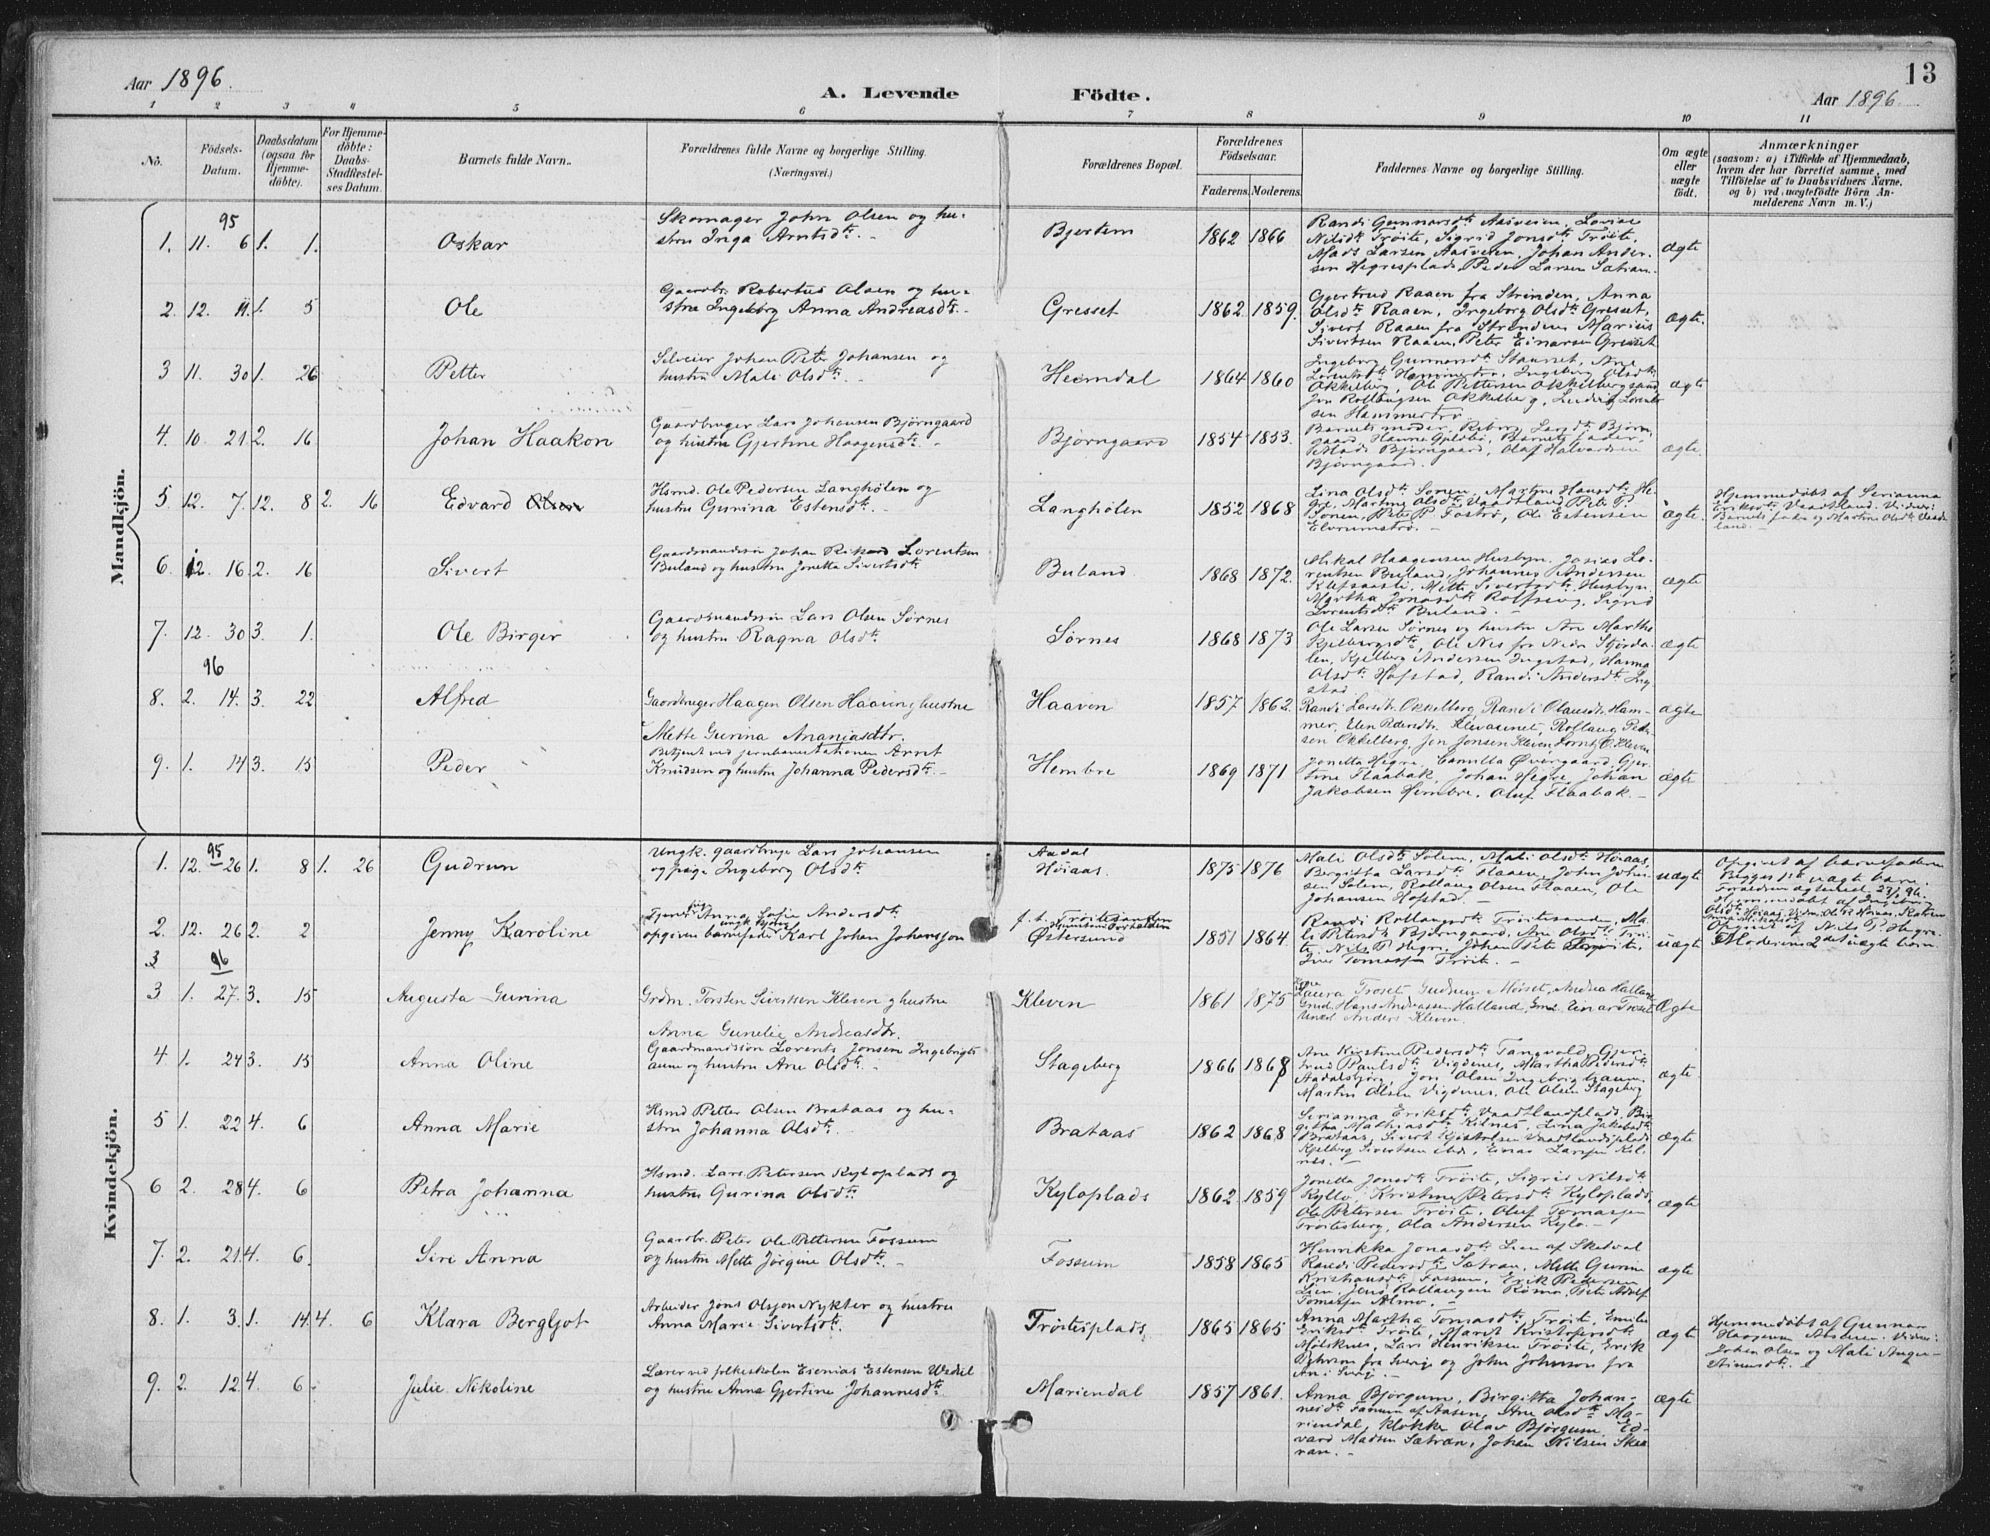 Aar 1896.
A. Levende Födte.
13
Aar 1896
1 2 3 4 5 6 7 8 9 10 11
No.
Födsels-
Datum.
Daabsdatum
(ogsaa for
Hjemme-
döbte).
For Hjemme-
döbte:
Daabs-
Stadfæstel-
ses Datum.
Barnets fulde Navn.
Forældrenes fulde Navne og borgerlige Stilling.
(Næringsvei.)
Forældrenes Bopæl.
Forældrenes
Födselsaar.
Faderens. Moderens.
Faddernes Navne og borgerlige Stilling.
Om ægte
eller
uægte
födt.
Anmærkninger
(saasom: a) i Tilfælde af Hjemmedaab,
hvem der har forrettet samme, med
Tilföielse af to Daabsvidners Navne,
og b) ved uægtefödte Börn An-
melderens Navn m. V.)
Mandkjön.
95
1. 11. 6 1. 1. Oskar
Skomager John Olsen og hu-
stru Inga Arntsdtr. -
Bjertem 1862 1866
Randi Gunnarsdtr. Aasveien, Lovise
Nilsdtr. Tröite, Sigrid Jonsdtr. Tröite,
Mads Larsen Aasveien, Johan Ander-
sen Hegresplads, Peder Larsen Sætran.
ægte
2. 12. 11. 1. 5 Ole
Gaardbr. Robertus Olsen og hu-
stru Ingeborg Anna Andreasdtr. -
Gresset 1862 1859.
Gjertrud Raaen fra Strinden, Anna
Olsdtr. Raaen, Ingeborg Olsdtr. Gresset,
Sivert Raaen fra Strinden, Marius
Sivertsen Raaen, Peter Einarsen Gresset
ægte.
3 11. 30 1. 26 Petter
Johan Peter Johansen og
hustru Mali Olsdtr. -
Heimdal 1864 1860
Ingeborg Gunnarsdtr.
Lorentsdtr. Hammertrö, Ingeborg Olsdtr.
Okkelberg, Ole Pettersen Okkelbergsand
Jon Rollaugsen Okkelberg, Ludvig Lorent-
sen Hammertrö
ægte
4. 10 21 2. 16 Johan Haakon
Gaardbruger Lars Johansen Björngaard
og hustru Gjertine Haagensdtr. -
Björngaard 1854 1853.
Barnets moder, Larsdtr. Björn-
gaard, Hanna Barnets fader,
Björngaard, Oluf Halvardsen
Björngaard.
ægte.
5 12. 7. 12. 8 2. 16 Edvard Olsen
Hsmd. Ole Pedersen Langhölen og
hustru Gurina Estensdtr. -
Langhölen 1852 1868
Lina Olsdtr. Sonen, Martine Hansdtr. He-
gre, Martine Olsdtr. Vaadtland, Peter P.
Sonen, Peter P. Foströ, Ole Estensen
Elvrumströ. -
ægte.
Hjemmedöbt af Serianna
Eriksdtr. Vaadtland. Vidner:
Barnets fader og Martine Olsdtr. Vaadt-
land. -
6. 12. 16. 2. 16 Sivert
Gaardmandssön Johan Rikard Lorentsen
Buland og hustru Jonetta Sivertsdtr.
Buland 1868 1872.
Mikal Haagensen Husbyn, Josias Lo-
rentsen Buland, Johannes Andersen
Klefsaasli, Mette Sivertsdtr. Husbyn,
Martha Jonasdtr. Rolfseng, Sigrid
Lorentsdtr. Buland. -
ægte
7. 12. 30 3. 1. Ole Birger
Gaardmandssön Lars Olsen Sörnes
og hustru Ragna Olsdtr.
Sörnes 1868 1873
Ole Larsen Sörnes og hustru Ane Martha
Kjelbergsdtr., Ole Nes fra Nedre Stjörda-
len, Kjelberg Andersen Ingstad, Hanna
Olsdtr. Hofstad, Randi Andersdtr. Ing-
stad
ægte
96
8. 2. 14. 3. 22 Alfred
Gaardbruger Haagen Olsen Haaven og hustru
Mette Gurina Ananiasdtr.
Haaven 1857 1862.
Randi Larsdtr. Okkelberg, Randi Olausdtr. Ham-
mer, Elen Pedersdtr. Klevasunet, Rollaug Peter-
sen Okkelberg, Jon Jonsen Kleven, Lorntz O. Kleven
ægte
9. 1. 14 3. 15 Peder
Betjent ved jernbanestationen Arnt
Knudsen og hustru Johanna Pedersdtr. -
Hembre 1869 1871
Jonetta Hegre, Camilla Övergaard, Gjer-
tine Flaabak, Johan Hegre, Johan
Jakobsen Hembre, Oluf Flaabak. -
ægte
Kvindekjön.
95
1. 12. 26 1. 8 1. 26 Gudrun
Ungk. gaardbruger Lars Johansen
og pige Ingeborg Olsdtr.
Aadal
Höiaas. 1875 1876
Mali Olsdtr. Solem, Mali Olsdtr. Höiaas,
Bergitta Larsdtr. Flaaen, John John-
sen Solem, Rollaug Olsen Flaaen, Ole
Johansen Hofstad. -
uægte
Opgivet af barnefaderen
Begges 1ste uægte barn.
Forældrene ægteviet 23/1 96.
Hjemmedöbt af Ingeborg
Olsdtr. Höiaas. Vidn: Ole R. Höiaas,
2. 12. 26 2. 2 Jenny Karoline
Tjenerpige Anna Sofie Andersdtr.
opgiven barnefader ungk. Karl Johan Johansson
f. t. Tröitesanden
Östersund 1851 1864.
Randi Rollaugsdtr. Tröitesanden, Ma-
li Petersdtr. Björngaard, Ane Olsdtr. Tröi-
te, Nils P. Hegre, Johan Peter Tröite,
Iver Tomassen Tröite. -
uægte
Opgivet af Nils P. Hegre.
Moderens 2det uægte barn.
3 96
3 1. 27. 3. 15 Augusta Gurina
Grdm. Torsten Sivertsen Kleven og hustru
Anna Gunelie Andreasdtr.
Kleven 1861 1875
Laura Troset, Gudrun Möiset, Andrea Halland
Grmd. Hans Andreassen Halland, Einar Troset
Ungkl Anders Kleven.
Ægte
4 1. 24 3. 15 Anna Oline
Gaardmandssön Lorents Jonsen Ingebrigts-
aune og hustru Ane Olsdtr. -
Stageberg 1866 1868
Ane Kirstine Pedersdtr. Tangvold, Gjer-
trud Paulsdtr. Vigdenes, Martha Pedersdtr.
Aadalsbjörg, Jon Olsen Ingebrigtsaune,
Martin Olsen Vigdenes, Ole Olsen Stageberg
ægte.
5 1. 22 4. 6 Anna Marie
Hsmd Petter Olsen Brataas og hu-
stru Johanna Olsdtr. -
Brataas 1862 1868
Serianna Eriksdtr. Vaadtlandplads, Bir-
githa Mathiasdtr. Kilnes, Lina Jakobsdtr.
Brataas, Sivert Kristofersen Vaadtlandsplads
Kjelberg Sivertsen ibd., Einar Larsen Kil-
nes. -
ægte
6 2. 28 4. 6 Petra Johanna
Hsmd. Lars Petersen Kyloplads og
hustru Gurina Olsdtr.
Kyloplads 1862 1859
Jonetta Jonsdtr. Tröite, Sigrid Nilsdtr.
Kyllo, Kristine Petersdtr. Kyloplads,
Ole Petersen Tröite, Oluf Tomassen
Tröitesberg, Ola Andersen Kylo. -
ægte
7. 2. 21. 4. 6. Siri Anna
Gaardbr. Peter Ole Pettersen Fossum
og hustru Mette Jörgine Olsdtr. -
Fossum 1858 1865
Henrikka Jonasdtr. Lien af Skatval
Randi Pedersdtr. Sætran, Mette Gurine
Kristiansdtr. Fossum, Erik Pedersen
Lien, Jens Rollaugsen Römo, Peter Adolf
Tomassen Almo. -
ægte
8. 1. 3. 1. 14. 4. 6 Klara Bergljot
Arbeider Jons Olsson Nykter og hustru
Anna Marie Sivertsdtr.
Tröitesplads 1865 1865
Anna Martha Tomasdtr. Tröite, Emilie
Eriksdtr. Tröite, Marit Kristofersdtr.
Mölsknes, Lars Henriksen Tröite, Erik
Pehrson fra Sverige og John Johnson fra
An i Sverige. -
ægte
Hjemmedöbt af Gunnar
Haagensen Aasveien. Vidner:
Johan Olsen og Mali Ange-
9. 2. 12. 4. 6. Julie Nikoline
Lærer ved folkeskolen Esenias Estensen Wedal
og hustru Anna Gjertine Johannesdtr.
Mariendal 1857 1861.
Anna Björgum, Birgitta Johan-
nesdtr. Fanum af Aasen, Ane Olsdtr. Ma-
riendal, klokker Olav Björgum, Ed-
vard Madsen Sætran, Johan Nilsen Skaa-
ran. -
ægte